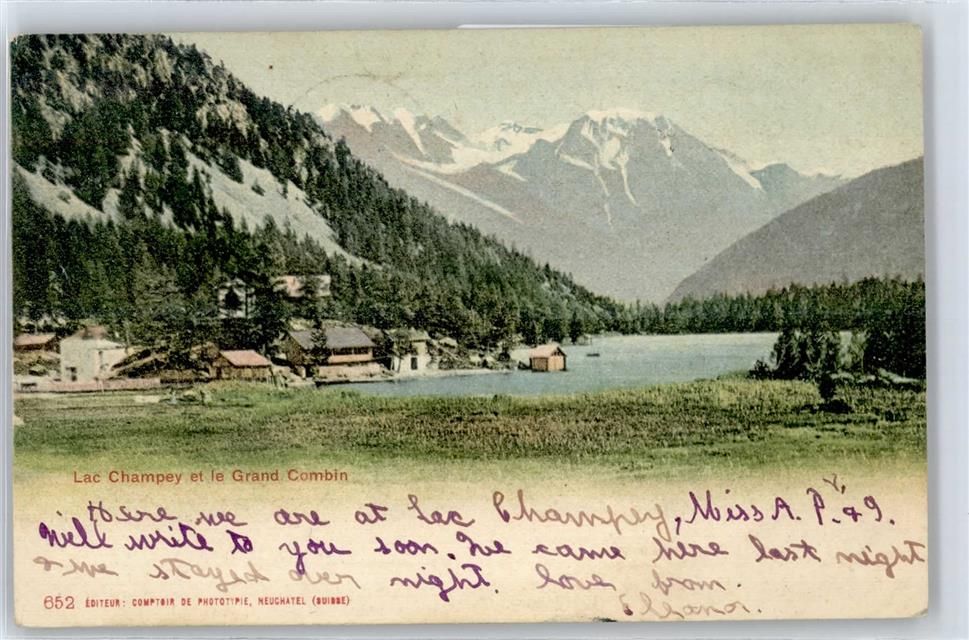 Lac Champey et le Grand Combin
Here we are at Lac Champey, Miss A. P. & I.
Will write to you soon. We came here last night
& we stayed over night. love from
Eleanor.
652 ÉDITEUR: COMPTOIR DE PHOTOTYPIE, NEUCHATEL (SUISSE)